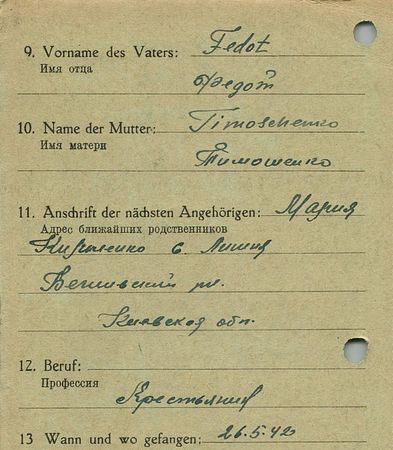 9. Vorname des Vaters: Fedot
Имя отца
Федот
10. Name der Mutter: Timoschenko
Имя матери
Тимошенко
11. Anschrift der nächsten Angehörigen: Мария
Адрес ближайших родственников
с.
Киевская обл.
12. Beruf:
Профессия
Крестьянин
13 Wann und wo gefangen: 26.5.42